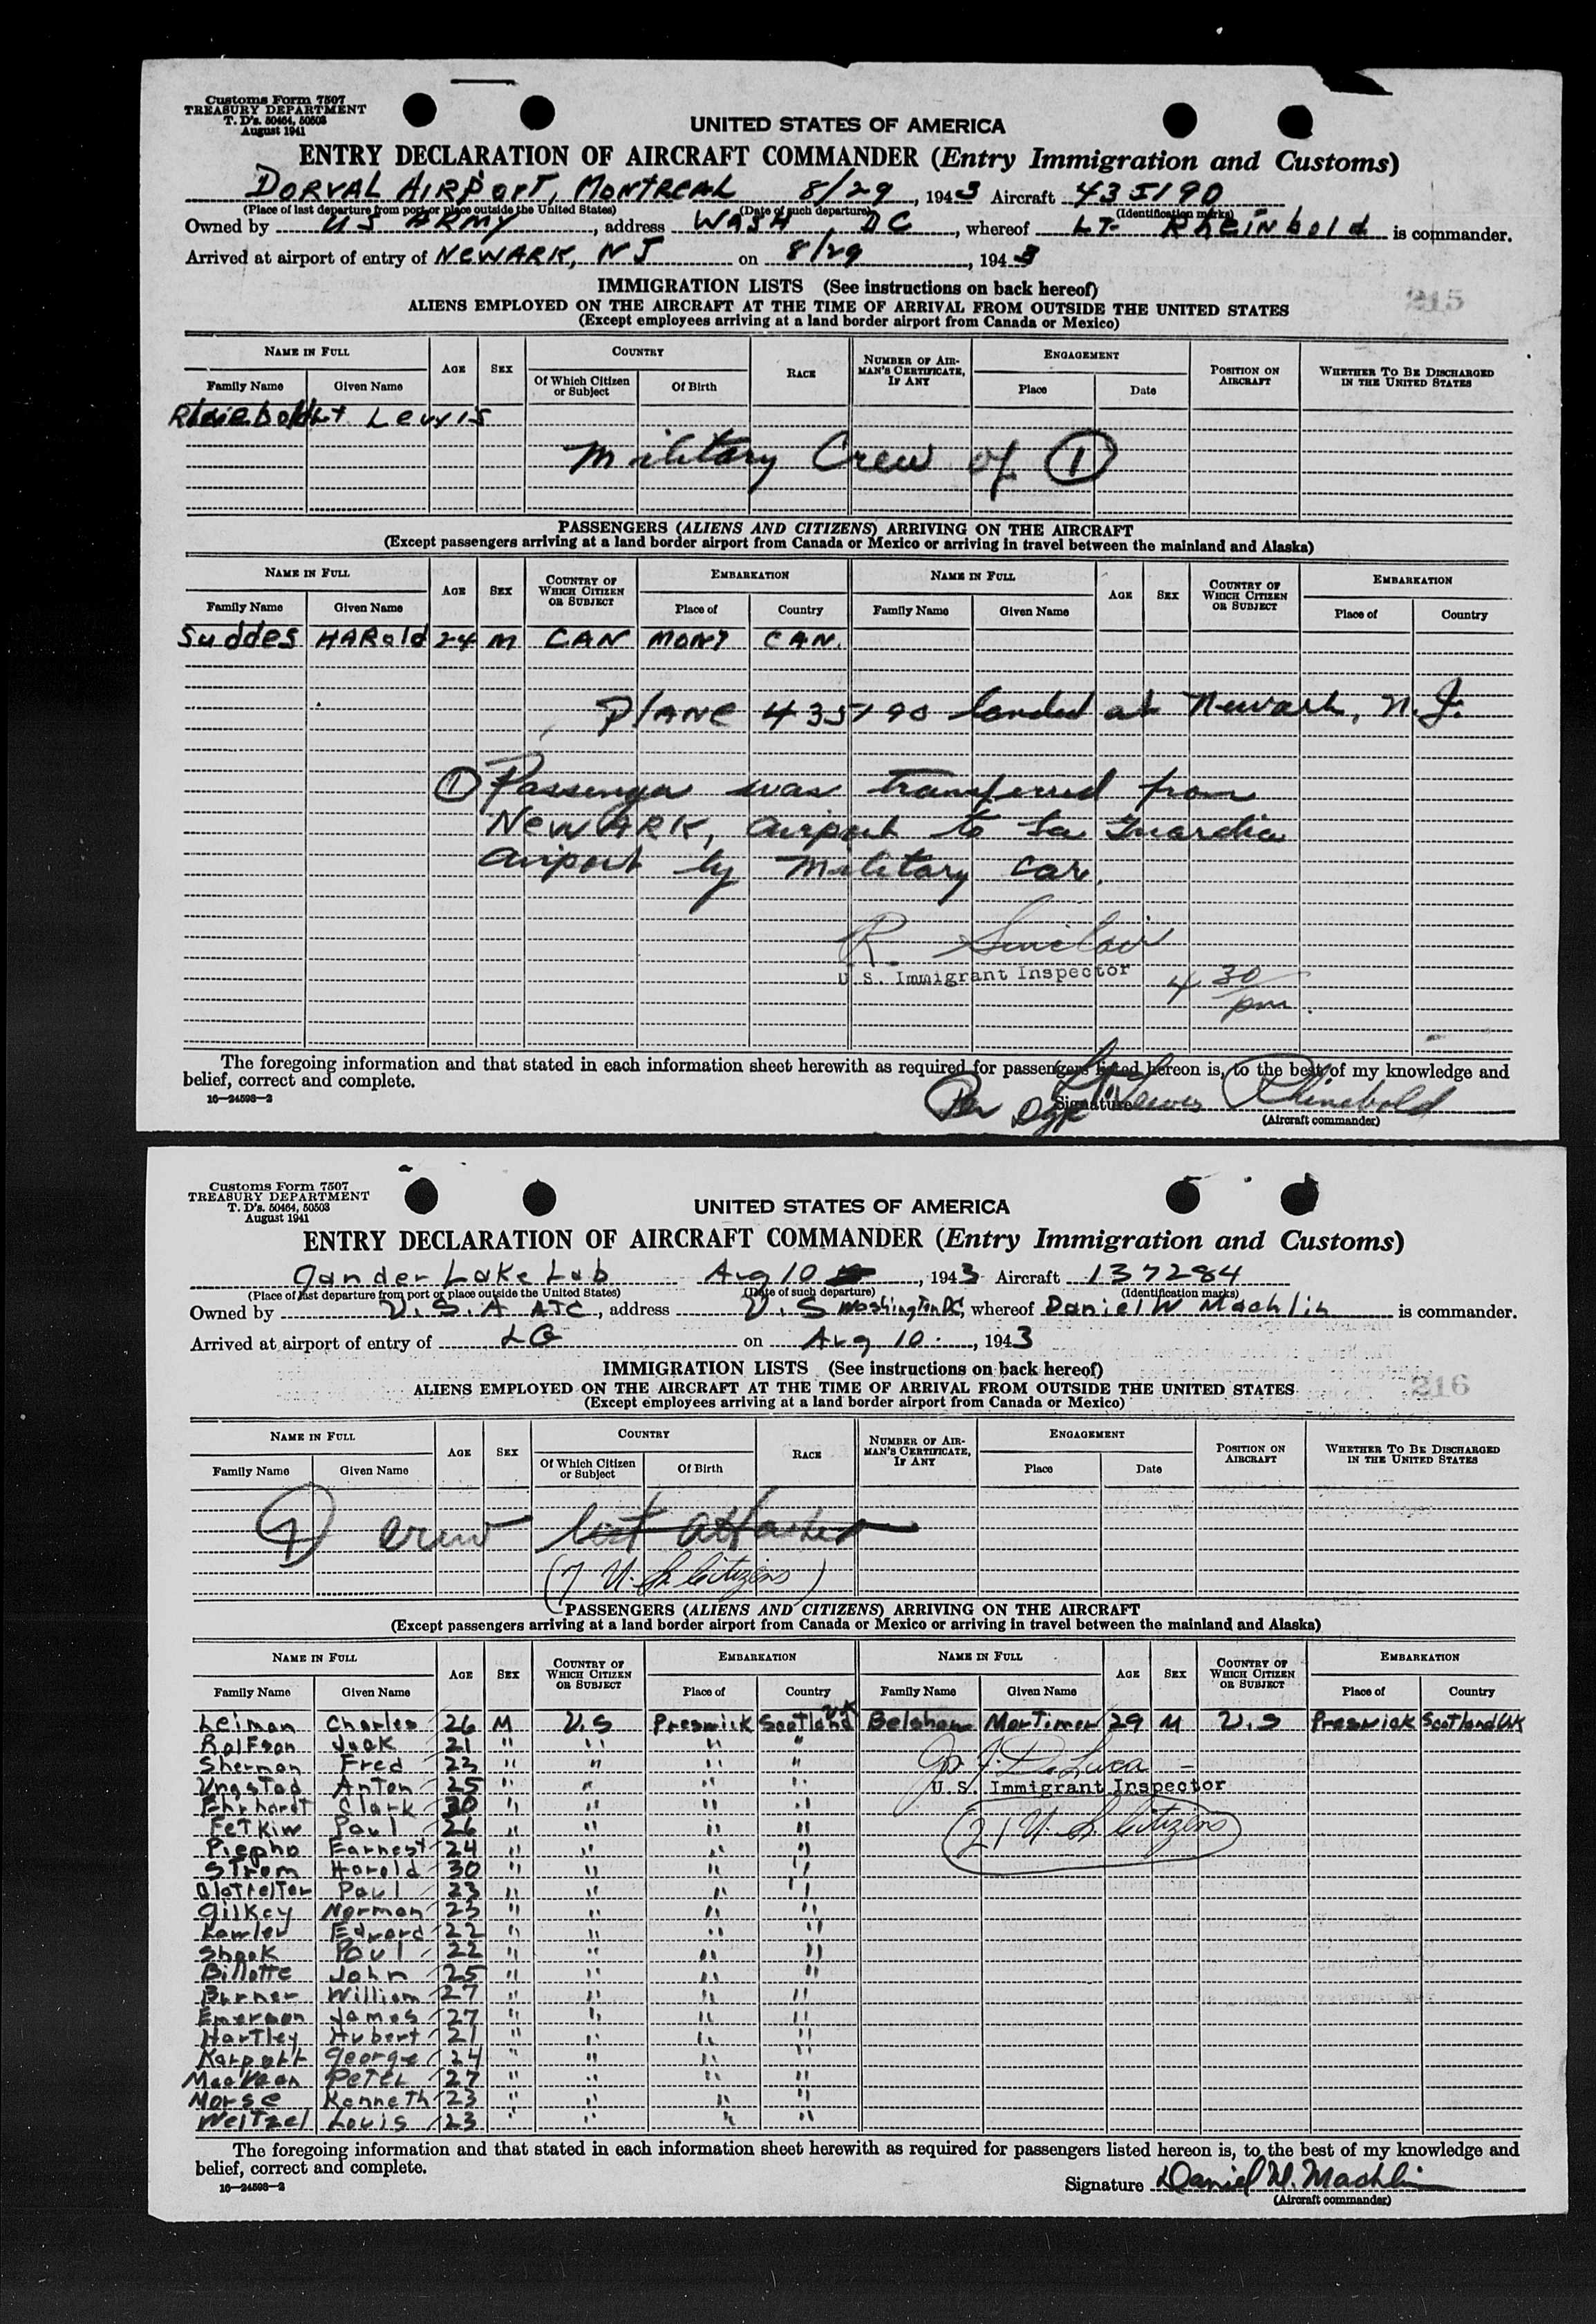 Customs Form 7507
TREASURY DEPARTMENT
T. D's. 50464, 50503
August 1941
UNITED STATES OF AMERICA
ENTRY DECLARATION OF AIRCRAFT COMMANDER (Entry Immigration and Customs)
DORVAL AIRPORT, MONTREAL 8/29, 1943 Aircraft 435190
(Place of last departure from port or place outside the United States) (Date of such departure) (Identification marks)
Owned by US ARMY, address WASH DC, whereof LT. Rheinbold is commander.
Arrived at airport of entry of NEWARK, NJ on 8/29, 1943
IMMIGRATION LISTS (See instructions on back hereof)
215
ALIENS EMPLOYED ON THE AIRCRAFT AT THE TIME OF ARRIVAL FROM OUTSIDE THE UNITED STATES
(Except employees arriving at a land border airport from Canada or Mexico)
NAME IN FULL AGE SEX COUNTRY RACE NUMBER OF AIRMAN'S CERTIFICATE, IF ANY ENGAGEMENT POSITION ON AIRCRAFT WHETHER TO BE DISCHARGED IN THE UNITED STATES
Family Name Given Name Of Which Citizen or Subject Of Birth Place Date
Lt Lewis
Military Crew of 1
PASSENGERS (ALIENS AND CITIZENS) ARRIVING ON THE AIRCRAFT
(Except passengers arriving at a land border airport from Canada or Mexico or arriving in travel between the mainland and Alaska)
NAME IN FULL AGE SEX COUNTRY OF WHICH CITIZEN OR SUBJECT EMBARKATION NAME IN FULL AGE SEX COUNTRY OF WHICH CITIZEN OR SUBJECT EMBARKATION
Family Name Given Name Place of Country Family Name Given Name Place of Country
Suddes HARold 24 M CAN MONT CAN.
PlANE 435190 landed at Newark, N.J.
1 Passenger was transferred from
NEWARK, airport to La Guardia
airport by Military car.
R. Sinclair
U.S. Immigrant Inspector
4 30 pm
The foregoing information and that stated in each information sheet herewith as required for passengers listed hereon is, to the best of my knowledge and
belief, correct and complete.
16—24598-2
Per Signature Lt. Lewis Rhinebold
(Aircraft commander)
Customs Form 7507
TREASURY DEPARTMENT
T. D's. 50464, 50503
August 1941
UNITED STATES OF AMERICA
ENTRY DECLARATION OF AIRCRAFT COMMANDER (Entry Immigration and Customs)
Gander Lake Lab Aug 10, 1943 Aircraft 137284
(Place of last departure from port or place outside the United States) (Date of such departure) (Identification marks)
Owned by U.S.A ATC, address U.S Washington DC, whereof Daniel W Machlin is commander.
Arrived at airport of entry of LG on Aug 10, 1943
IMMIGRATION LISTS (See instructions on back hereof)
216
ALIENS EMPLOYED ON THE AIRCRAFT AT THE TIME OF ARRIVAL FROM OUTSIDE THE UNITED STATES
(Except employees arriving at a land border airport from Canada or Mexico)
NAME IN FULL AGE SEX COUNTRY RACE NUMBER OF AIRMAN'S CERTIFICATE, IF ANY ENGAGEMENT POSITION ON AIRCRAFT WHETHER TO BE DISCHARGED IN THE UNITED STATES
Family Name Given Name Of Which Citizen or Subject Of Birth Place Date
7 crew list attached
(7 U.S. Citizens)
PASSENGERS (ALIENS AND CITIZENS) ARRIVING ON THE AIRCRAFT
(Except passengers arriving at a land border airport from Canada or Mexico or arriving in travel between the mainland and Alaska)
NAME IN FULL AGE SEX COUNTRY OF WHICH CITIZEN OR SUBJECT EMBARKATION NAME IN FULL AGE SEX COUNTRY OF WHICH CITIZEN OR SUBJECT EMBARKATION
Family Name Given Name Place of Country Family Name Given Name Place of Country
Leiman Charles 26 M U.S Preswick Scotland UK Belshaw Mortimer 29 M U.S Preswick Scotland UK
Rolfson Jack 21 " " " "
Jos. J. DeLuca
Sherman Fred 23 " " " "
U.S. Immigrant Inspector
Ungstad Anton 25 " " " "
Ehrhardt Clark 30 " " " "
(21 U.S. Citizens)
Fetkin Paul 26 " " " "
Piepho Earnest 24 " " " "
Strom Harold 30 " " " "
Paul 23 " " " "
Gilkey Norman 23 " " " "
Lawler Edward 22 " " " "
Shook Paul 22 " " " "
Billotte John 25 " " " "
Burner William 27 " " " "
Emerson James 27 " " " "
Hartley Hubert 21 " " " "
George 24 " " " "
MacVean Peter 27 " " " "
Morse Kenneth 23 " " " "
Weitzel Louis 23 " " " "
The foregoing information and that stated in each information sheet herewith as required for passengers listed hereon is, to the best of my knowledge and
belief, correct and complete.
16—24598-2
Signature Daniel W. Machlin
(Aircraft commander)